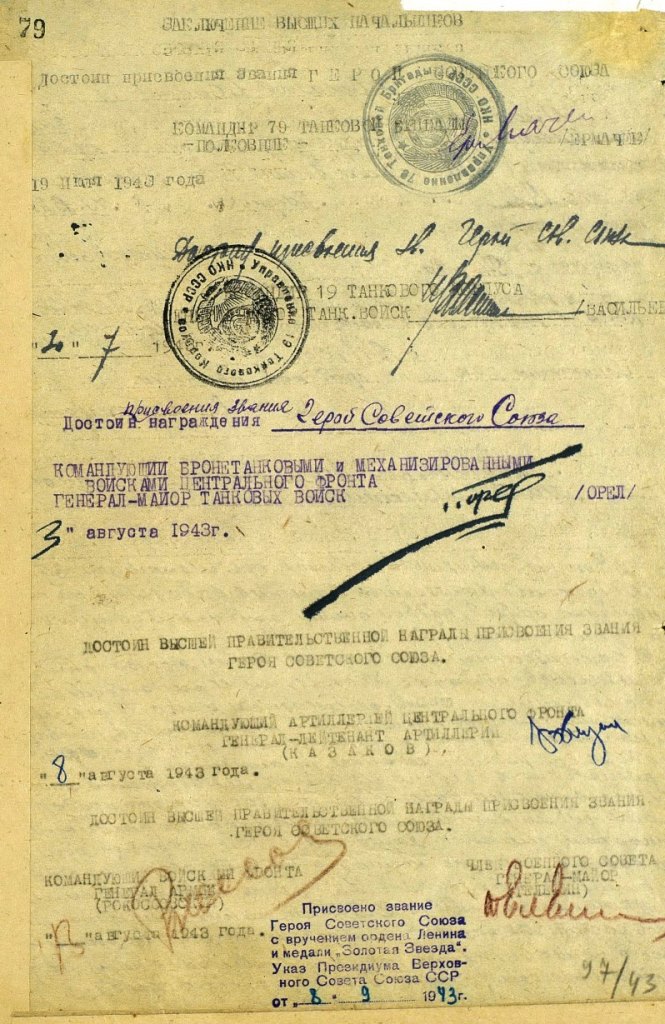 79
ЗАКЛЮЧЕНИЕ ВЫСШИХ НАЧАЛЬНИКОВ
Достоин присвоения звания ГЕРОЙ СОЮЗА
КОМАНДИР 79 ТАНКОВОЙ БРИГАДЫ
-ПОЛКОВНИК-
Управление 79 Танковой Бригады НКО СССР
19 1943 года
Достоин присвоения зв. Герой Сов. Союза
19 ТАНКОВОГО КОРПУСА
ТАНК.ВОЙСК /ВАСИЛЬЕВ
Управление 19 Танкового Корпуса НКО СССР
"20" 7
присвоения звания
Достоин награждения Герой Советского Союза
КОМАНДУЮЩИЙ БРОНЕТАНКОВЫМИ и МЕХАНИЗИРОВАННЫМИ
ВОЙСКАМИ ЦЕНТРАЛЬНОГО ФРОНТА
ГЕНЕРАЛ-МАЙОР ТАНКОВЫХ ВОЙСК /ОРЕЛ/
3" августа 1943г.
ДОСТОИН ВЫСШЕЙ ПРАВИТЕЛЬСТВЕННОЙ НАГРАДЫ ПРИСВОЕНИЯ ЗВАНИЯ
ГЕРОЯ СОВЕТСКОГО СОЮЗА.
КОМАНДУЮЩИЙ АРТИЛЛЕРИЕЙ ЦЕНТРАЛЬНОГО ФРОНТА
ГЕНЕРАЛ-ЛЕЙТЕНАНТ АРТИЛЛЕРИИ
(КАЗАКОВ)
"8" августа 1943 года.
ДОСТОИН ВЫСШЕЙ ПРАВИТЕЛЬСТВЕННОЙ НАГРАДЫ ПРИСВОЕНИЯ ЗВАНИЯ
ГЕРОЯ СОВЕТСКОГО СОЮЗА.
КОМАНДУЮЩИЙ ВОЙСКАМИ ФРОНТА ЧЛЕН ВОЕННОГО СОВЕТА
ГЕНЕРАЛ АРМИИ ГЕНЕРАЛ-МАЙОР
(РОКОССОВСКИЙ) (ТЕЛЕГИН)
августа 1943 года.
Присвоено звание
Героя Советского Союза
с вручением ордена Ленина
и медали „Золотая Звезда".
Указ Президиума Верхов-
ного Совета Союза ССР
от „8" 9 1943г.
97/43